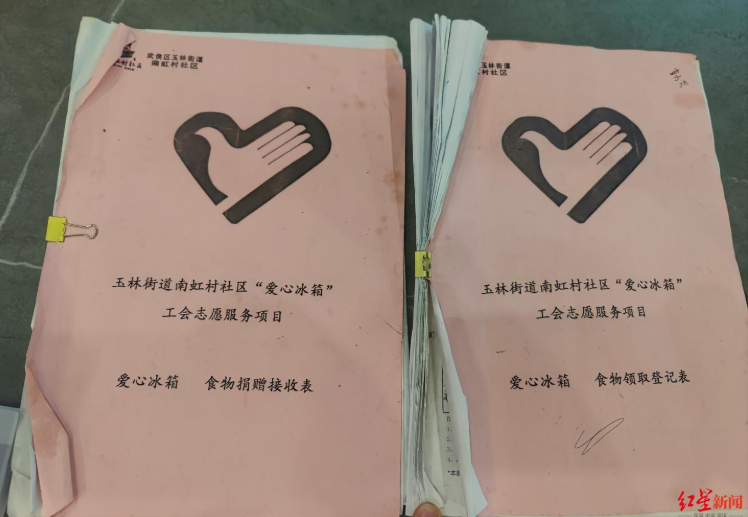 武侯区玉林街道
南虹村社区
玉林街道南虹村社区“爱心冰箱”
工会志愿服务项目
爱心冰箱 食物捐赠接收表
玉林街道
村社区
玉林街道南虹村社区“爱心冰箱”
工会志愿服务项目
爱心冰箱 食物领取登记表
红星新闻